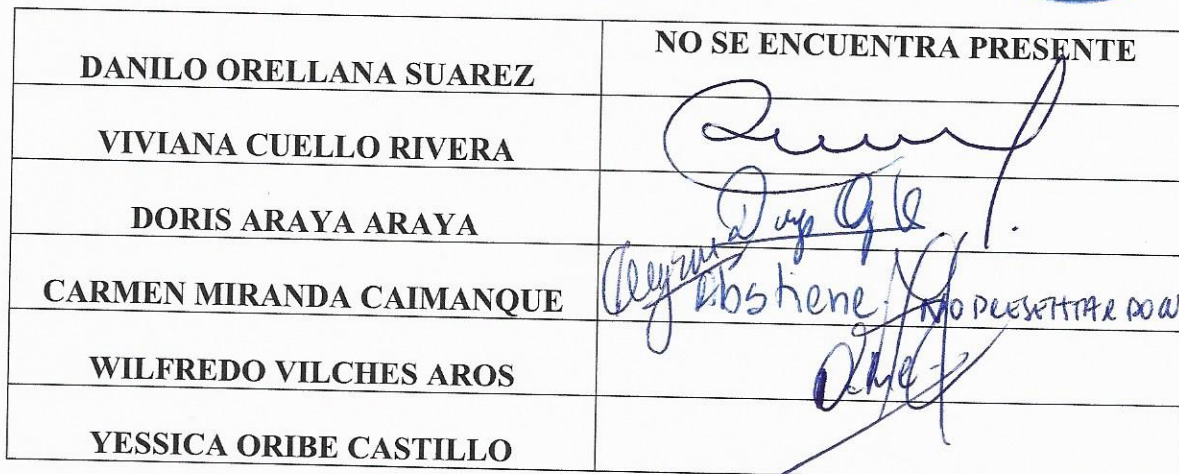 DANILO ORELLANA SUAREZ NO SE ENCUENTRA PRESENTE
VIVIANA CUELLO RIVERA
DORIS ARAYA ARAYA
CARMEN MIRANDA CAIMANQUE Abstiene NO PRESENTAR DOCU
WILFREDO VILCHES AROS
YESSICA ORIBE CASTILLO